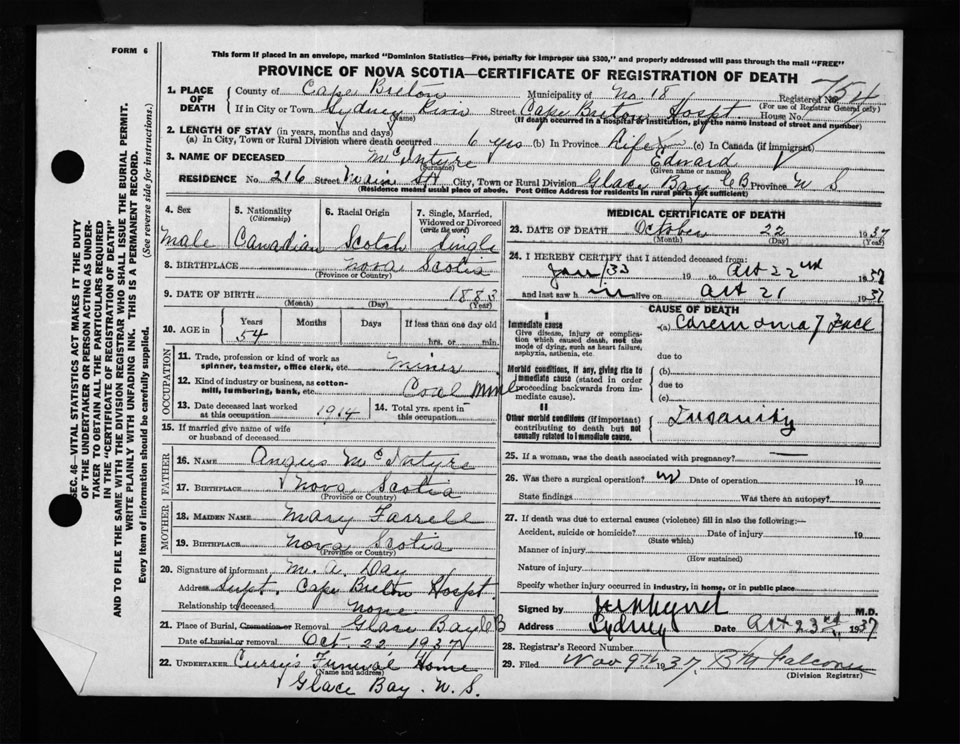 FORM 6
This form if placed in an envelope, marked "Dominion Statistics—Free, penalty for improper use $300," and properly addressed will pass through the mail "FREE"
PROVINCE OF NOVA SCOTIA—CERTIFICATE OF REGISTRATION OF DEATH
1. PLACE OF DEATH County of Cape Breton Municipality of No 18 Registered No. 754
(For use of Registrar General only)
If in City or Town Sydney River Street Cape Breton Hospt. House No.
(Name) (If death occurred in a hospital or institution, give the name instead of street and number)
2. LENGTH OF STAY (in years, months and days)
(a) In City, Town or Rural Division where death occurred 6 yrs (b) In Province Life (c) In Canada (if immigrant)
3. NAME OF DECEASED McIntyre Edward
(Surname) (Given name or names)
RESIDENCE No. 216 Street Main St City, Town or Rural Division Glace Bay C B Province N S
(Residence means usual place of abode. Post Office Address for residents in rural parts not sufficient)
4. Sex 5. Nationality (Citizenship) 6. Racial Origin 7. Single, Married, Widowed or Divorced (write the word)
Male Canadian Scotch Single
8. BIRTHPLACE Nova Scotia
(Province or Country)
9. DATE OF BIRTH 1883
(Month) (Day) (Year)
10. AGE in Years Months Days If less than one day old
54 hrs. or min.
OCCUPATION
11. Trade, profession or kind of work as spinner, teamster, office clerk, etc. Miner
12. Kind of industry or business, as cotton-mill, lumbering, bank, etc. Coal Mine
13. Date deceased last worked at this occupation 1914 14. Total yrs. spent in this occupation
15. If married give name of wife or husband of deceased
FATHER
16. NAME Angus McIntyre
17. BIRTHPLACE Nova Scotia
(Province or Country)
MOTHER
18. MAIDEN NAME Mary Farrell
19. BIRTHPLACE Nova Scotia
(Province or Country)
20. Signature of informant M. A. Day
Address Supt. Cape Breton Hospt.
Relationship to deceased None
21. Place of Burial, Cremation or Removal Glace Bay C B
Date of burial or removal Oct. 22 1937
22. UNDERTAKER Curry's Funeral Home
(Name and address)
Glace Bay. N. S.
MEDICAL CERTIFICATE OF DEATH
23. DATE OF DEATH October 22 1937
(Month) (Day) (Year)
24. I HEREBY CERTIFY that I attended deceased from:
Jan/33 19 to Oct 22nd 1937
and last saw h im alive on Oct 21 1937
CAUSE OF DEATH
I
Immediate cause (a) Carcinoma of Face
Give disease, injury or complication which caused death, not the mode of dying, such as heart failure, asphyxia, asthenia, etc.
due to
Morbid conditions, if any, giving rise to immediate cause (stated in order proceeding backwards from immediate cause). (b)
due to
(c)
II
Other morbid conditions (if important) contributing to death but not causally related to immediate cause. Insanity
25. If a woman, was the death associated with pregnancy?
26. Was there a surgical operation? no Date of operation 19
State findings Was there an autopsy?
27. If death was due to external causes (violence) fill in also the following:—
Accident, suicide or homicide? Date of injury 19
(State which)
Manner of injury
(How sustained)
Nature of injury
Specify whether injury occurred in industry, in home, or in public place
Signed by M.D.
Address Sydney Date Oct 23rd 1937
28. Registrar's Record Number
29. Filed Nov 9th 1937 Falconer
(Division Registrar)
SEC. 46—VITAL STATISTICS ACT MAKES IT THE DUTY
OF THE UNDERTAKER OR PERSON ACTING AS UNDERTAKER TO OBTAIN ALL THE PARTICULARS REQUIRED
IN THE "CERTIFICATE OF REGISTRATION OF DEATH"
AND TO FILE THE SAME WITH THE DIVISION REGISTRAR WHO SHALL ISSUE THE BURIAL PERMIT.
WRITE PLAINLY WITH UNFADING INK. THIS IS A PERMANENT RECORD.
Every item of information should be carefully supplied. (See reverse side for instructions.)